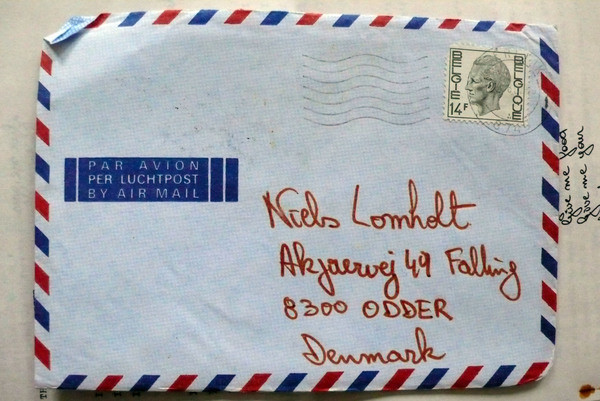 BELGIE
14F
BELGIQUE
PAR AVION
PER LUCHTPOST
BY AIR MAIL
Niels Lomholt
Akjaervej 49 Falling
8300 ODDER
Denmark
Give me food
give me your